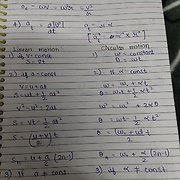 a_c = ωv = ω²r = v²/r
a_t = d|v|/dt    a_t = rα
[a_t = α × r]
Linear motion    Circular motion
1) if v = const    1) ω = constant
S = vt    θ = ωt
2) if a = const    2) if α = const
V = u + at    ω = ω₀ + αt
S = ut + ½at²    θ = ω₀t + ½αt²
v² = u² + 2as    ω² = ω₀² + 2αθ
S = vt - ½at²    θ = ωt - ½αt²
S = (u+v/2)t    θ = (ω₀ + ω)t
Sₙ = u + a/2 (2n-1)    θₙ = ω₀ + α/2 (2n-1)
3) If a ≠ const    3) if α ≠ const